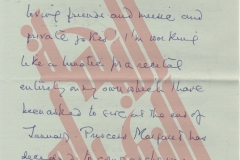 loving friends and music and
private jokes. I'm working
like a lunatic for a recital
entirely on my own which I have
been asked to give at the end of
January. Princess Margaret has